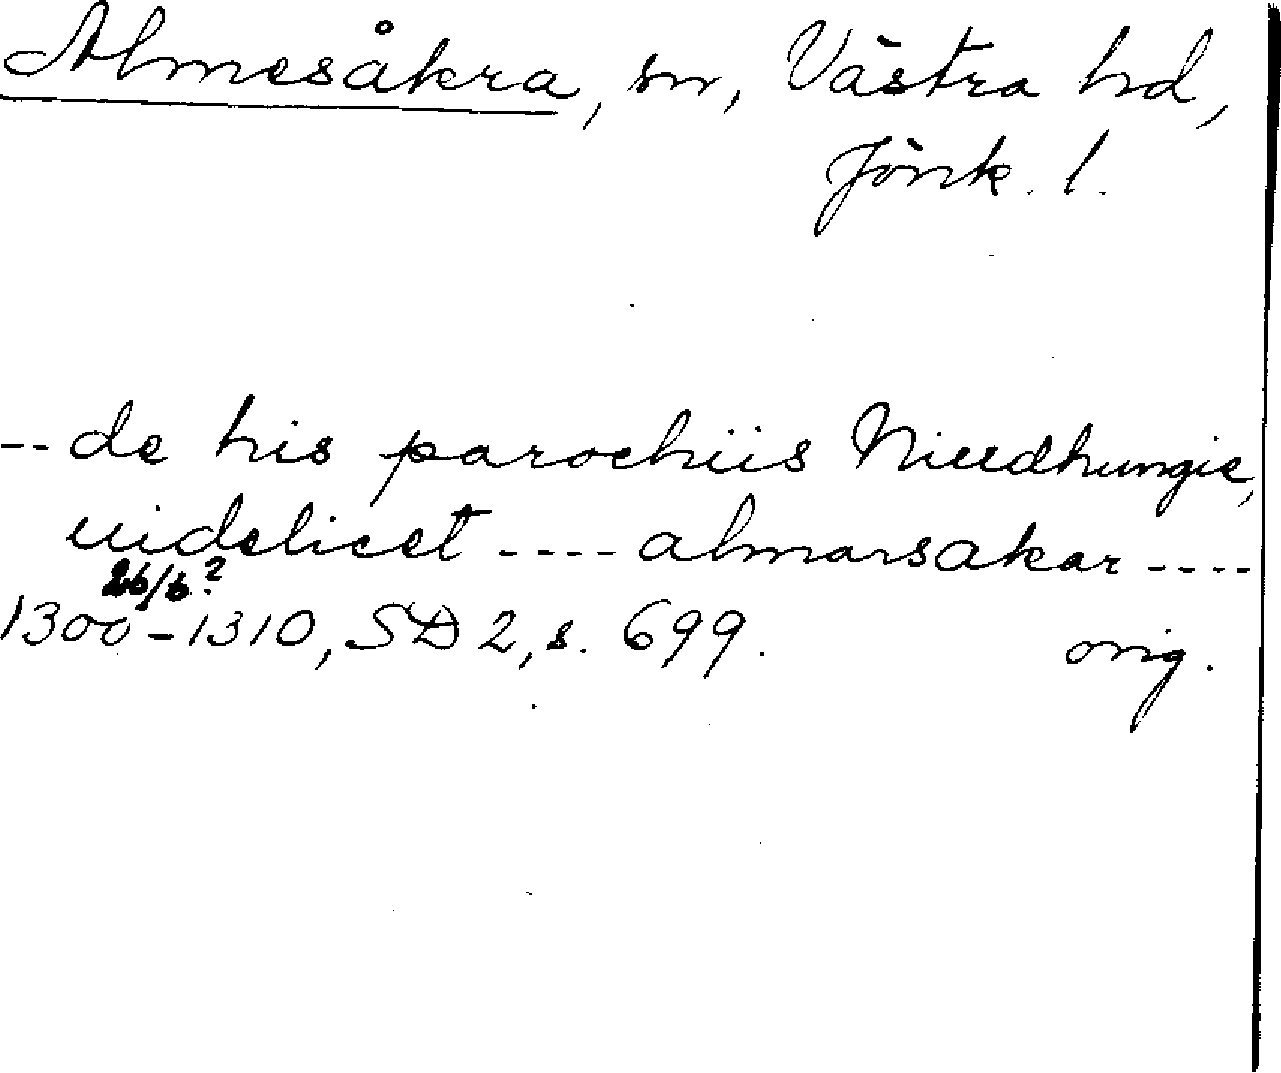 Almesåkra, sn, Västra hd,
Jönk. l.
-- de his parochiis Niudhungie,
uidelicet ---- almarsakar ----
26/6?
1300-1310, SD 2, s. 699. orig.